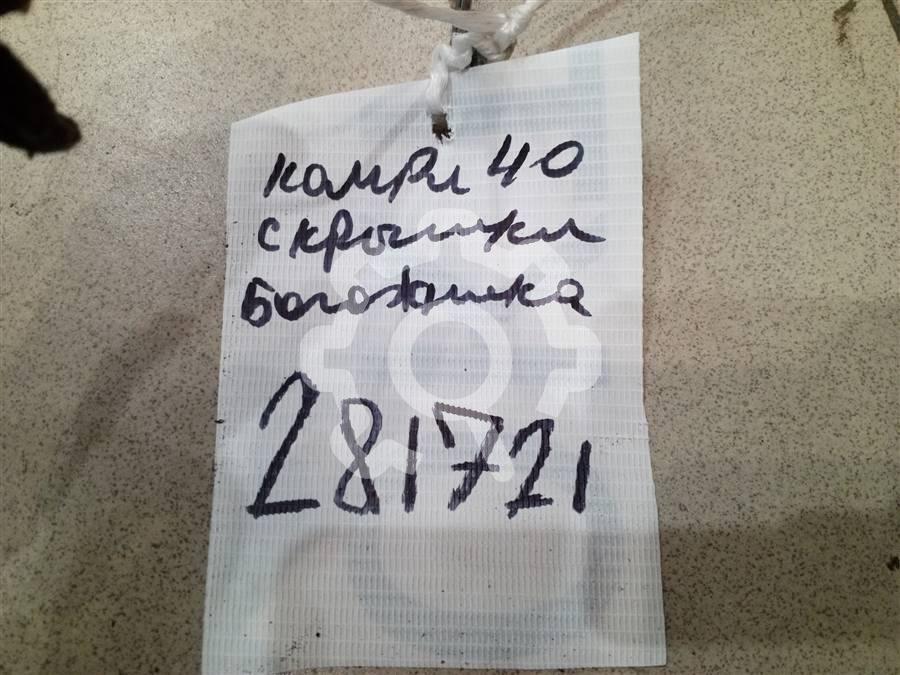 камри 40
с крышки
Богожника
281721